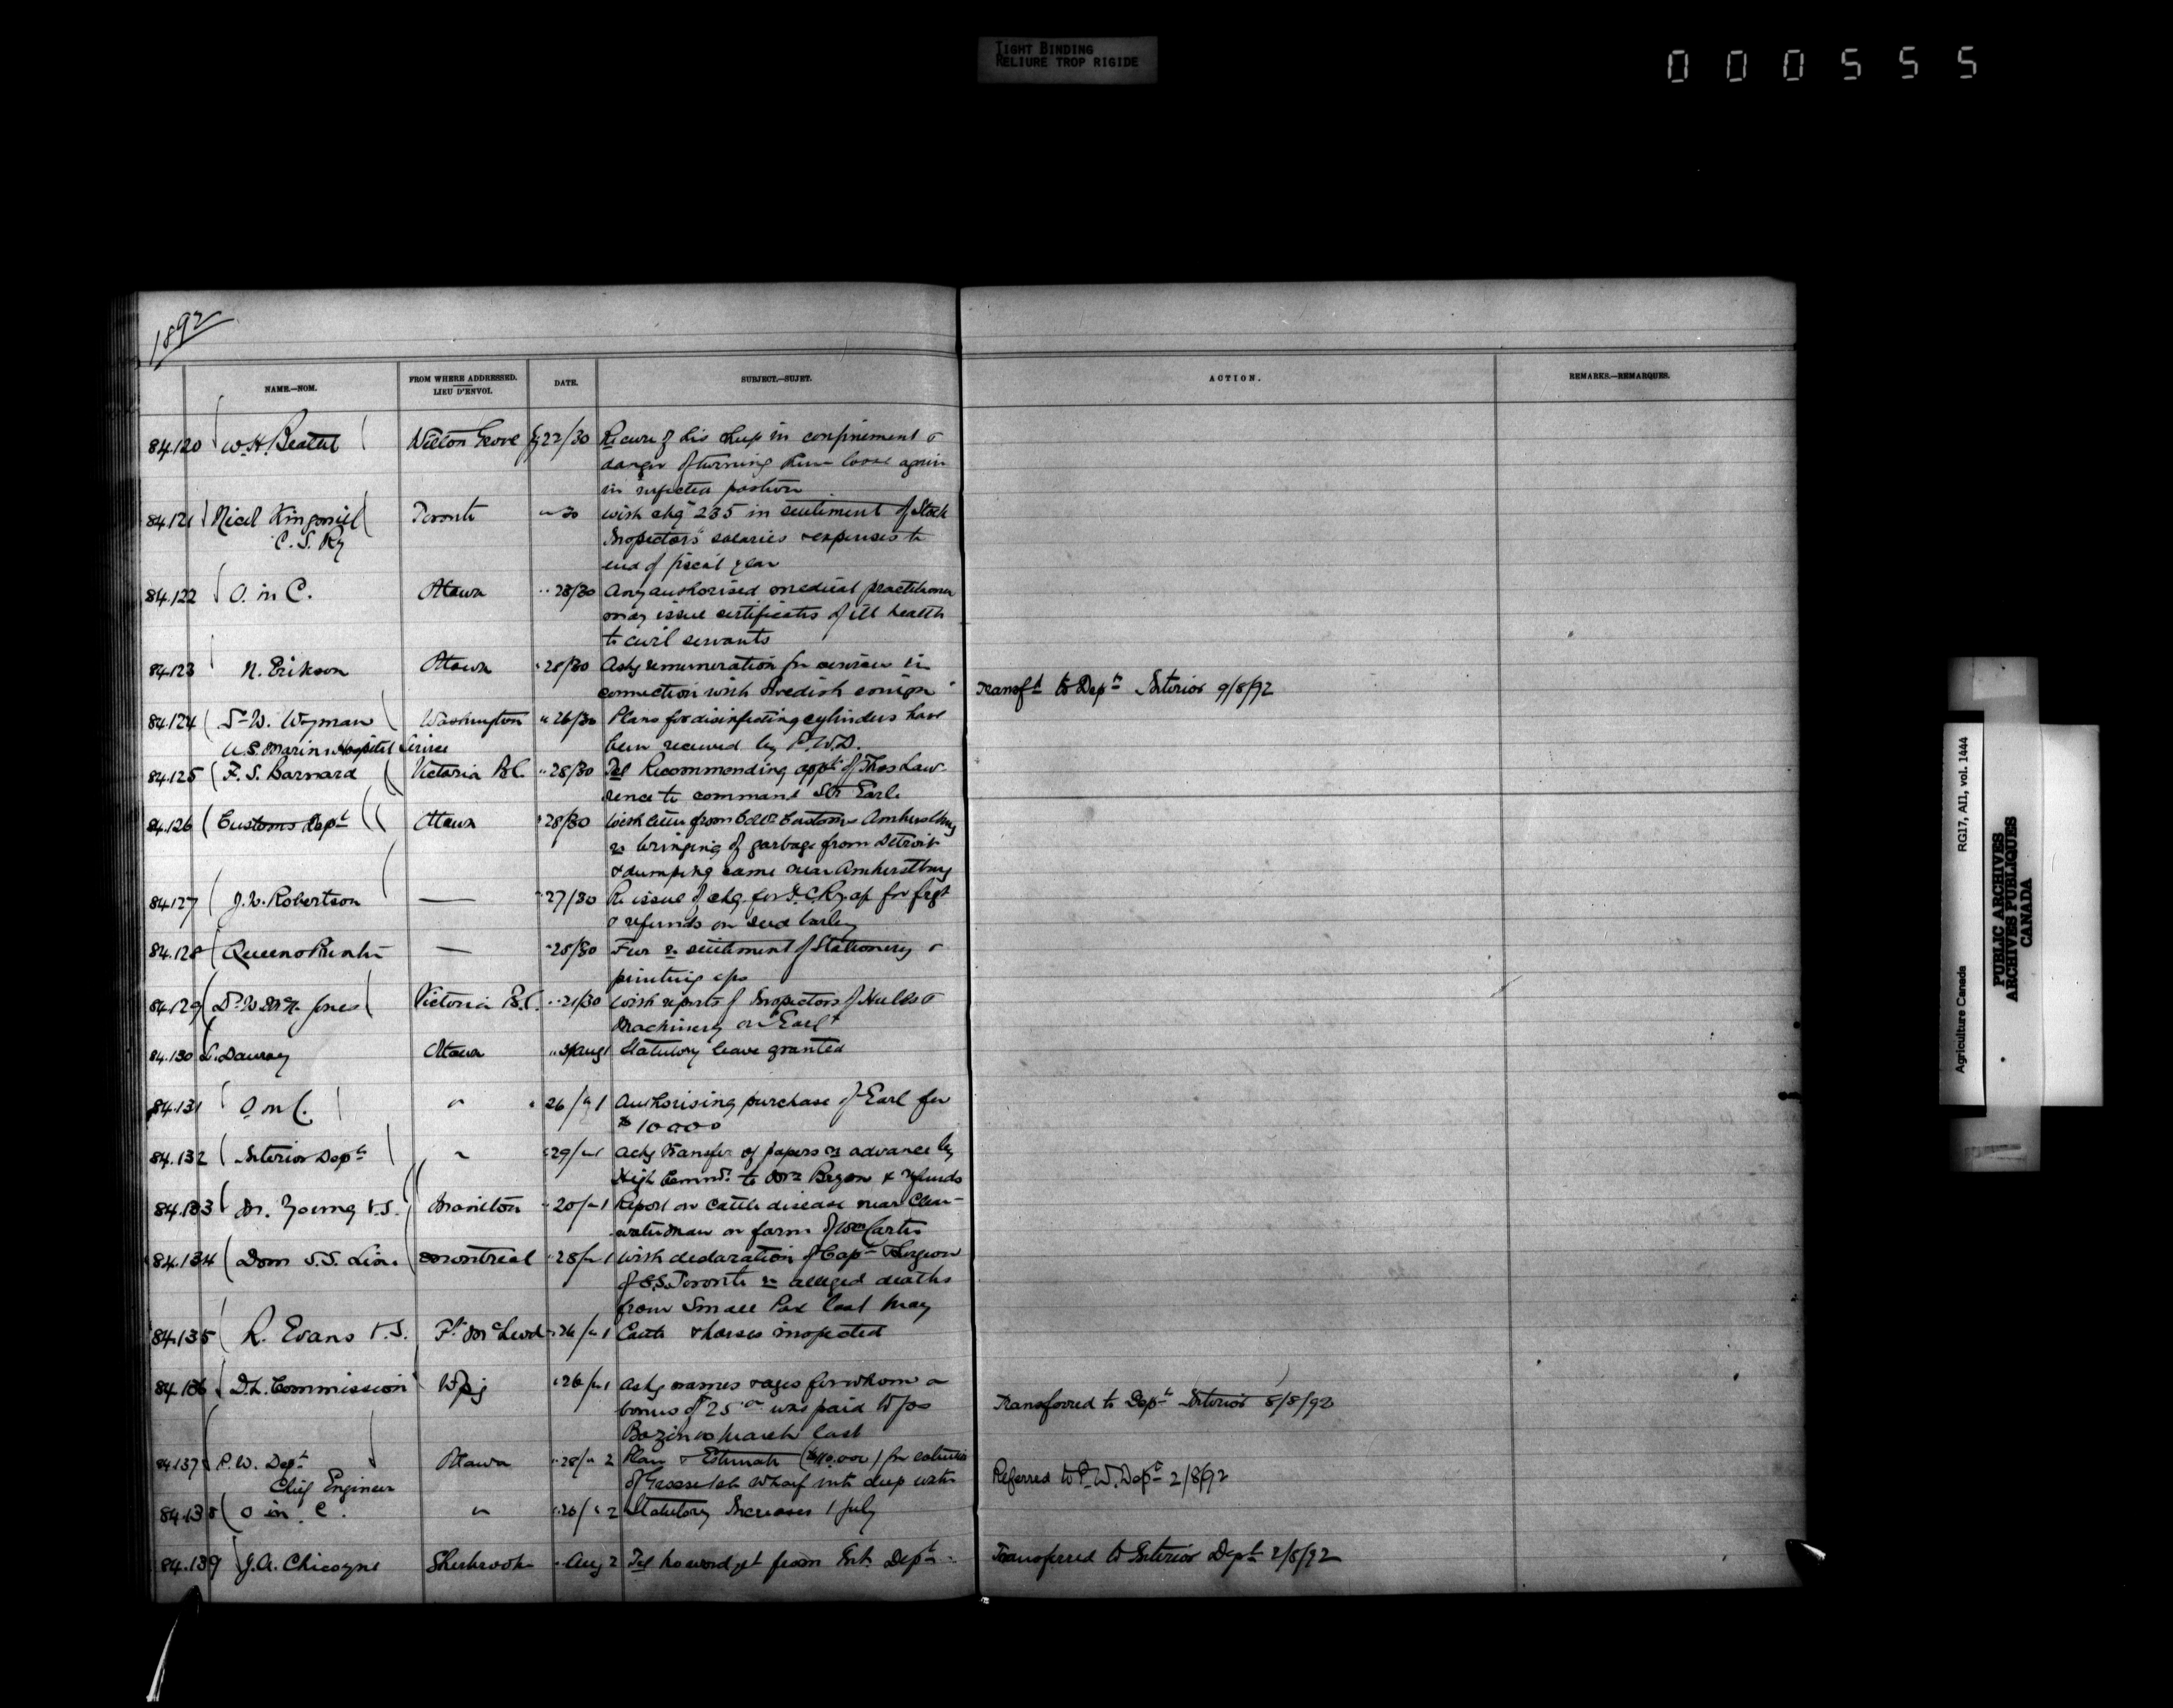 TIGHT BINDING
RELIURE TROP RIGIDE
000555
1892
NAME.—NOM.
FROM WHERE ADDRESSED.
LIEU D'ENVOI.
DATE.
SUBJECT.—SUJET.
ACTION.
REMARKS.—REMARQUES.
84.120 W.H. Beattie Wilton Grove 22/30 Re cure of his sheep in confinement &
danger of turning them loose again
in infected pasture
84.121 Nicol Kingsmill Toronto " 30 with chq 235 in settlement of Stock
C. S. Ry Inspectors' salaries & expenses to
end of fiscal year
84.122 O. in C. Ottawa " 28/30 Any authorised medical practitioner
may issue certificates of ill health
to civil servants
84.123 N. Erikson Ottawa " 28/30 Asks remuneration for services in
connection with Swedish emign Transfd to Dept Interior 9/8/92
84.124 Dr W. Wyman Washington " 26/30 Plans for disinfecting cylinders have
U.S. Marine Hospital Service been received by P.W.D.
84.125 F. S. Barnard Victoria B.C. " 28/30 Tel Recommending appt of Thos Law-
rence to command Str Earle
84.126 Customs Dept Ottawa " 28/30 With letter from Collr Customs Amherstburg
re bringing of garbage from Detroit
& dumping same near Amherstburg
84.127 J. W. Robertson — " 27/30 Re issue of chq. for I.C.Ry. a/c for frgt
& refunds on seed barley
84.128 Queens Printer — " 28/30 Fur re settlement of Stationery &
printing a/cs
84.129 Dr W. McN. Jones Victoria B.C. " 21/30 with reports of Inspectors of Hulls &
Machinery on "Earl"
84.130 Dauray Ottawa " Aug 1 Statutory leave granted
84.131 O in C. " " 26/" 1 Authorising purchase of Earl for
$10000
84.132 Interior Dept " " 29/" 1 Asks transfer of papers re advance by
High Commr. to & refunds
84.133 Dr. Young V.S. Manitou " 20/" 1 Report on cattle disease near Clear-
water Man on farm of Wm Carter
84.134 Dom S.S. Line Montreal " 28/" 1 With declaration of Capt & Surgeon
of S.S. Toronto re alleged deaths
from Small Pox last May
84.135 R. Evans V.S. Ft McLeod " 26/" 1 Cattle & horses inspected
84.136 D.L. Commission Wpg " 26/" 1 Asks names & ages for whom a
bonus of 25 was paid to Jos Transferred to Dept Interior 8/8/92
March last
84.137 P.W. Dept Ottawa " 28/" 2 Plan & Estimate ($40,000) for extension
Chief Engineer of Grosse Isle Wharf into deep water Referred to P.W. Dept 2/8/92
84.138 O in C. " " 26/" 2 Statutory Increases 1 July
84.139 J.A. Chicoyne Sherbrooke " Aug 2 Tel no word yet from Int. Dept. Transferred to Interior Dept 2/8/92
Agriculture Canada RG17, AI1, vol. 1444
PUBLIC ARCHIVES
ARCHIVES PUBLIQUES
CANADA